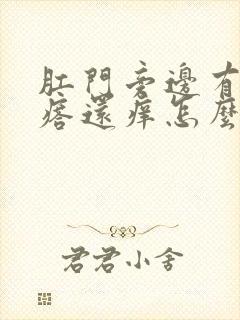 肛門旁邊有
痞還痒怎麼
君君小舍